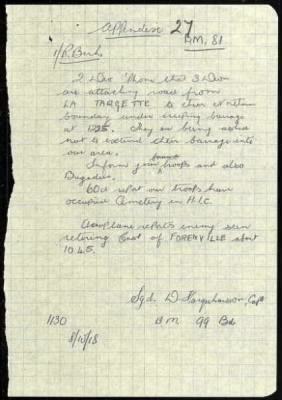 Appendix 27
B.M. 81
1/R. Berks
2 Divn 'Phone that 3 Divn
are attacking now from
LA TARGETTE to their northern
boundary under creeping barrage
at 1225. They are being asked
not to extend their barrage into
our area.
Inform your forward troops and also
Brigades.
60th report our troops have
occupied Cemetery in H.1.C.
Aeroplane reports enemy seen
retiring East of FORENVILLE about
1045.
Sgd. D Farquharson, Capt
1130 B.M. 99 Bde
8/10/18